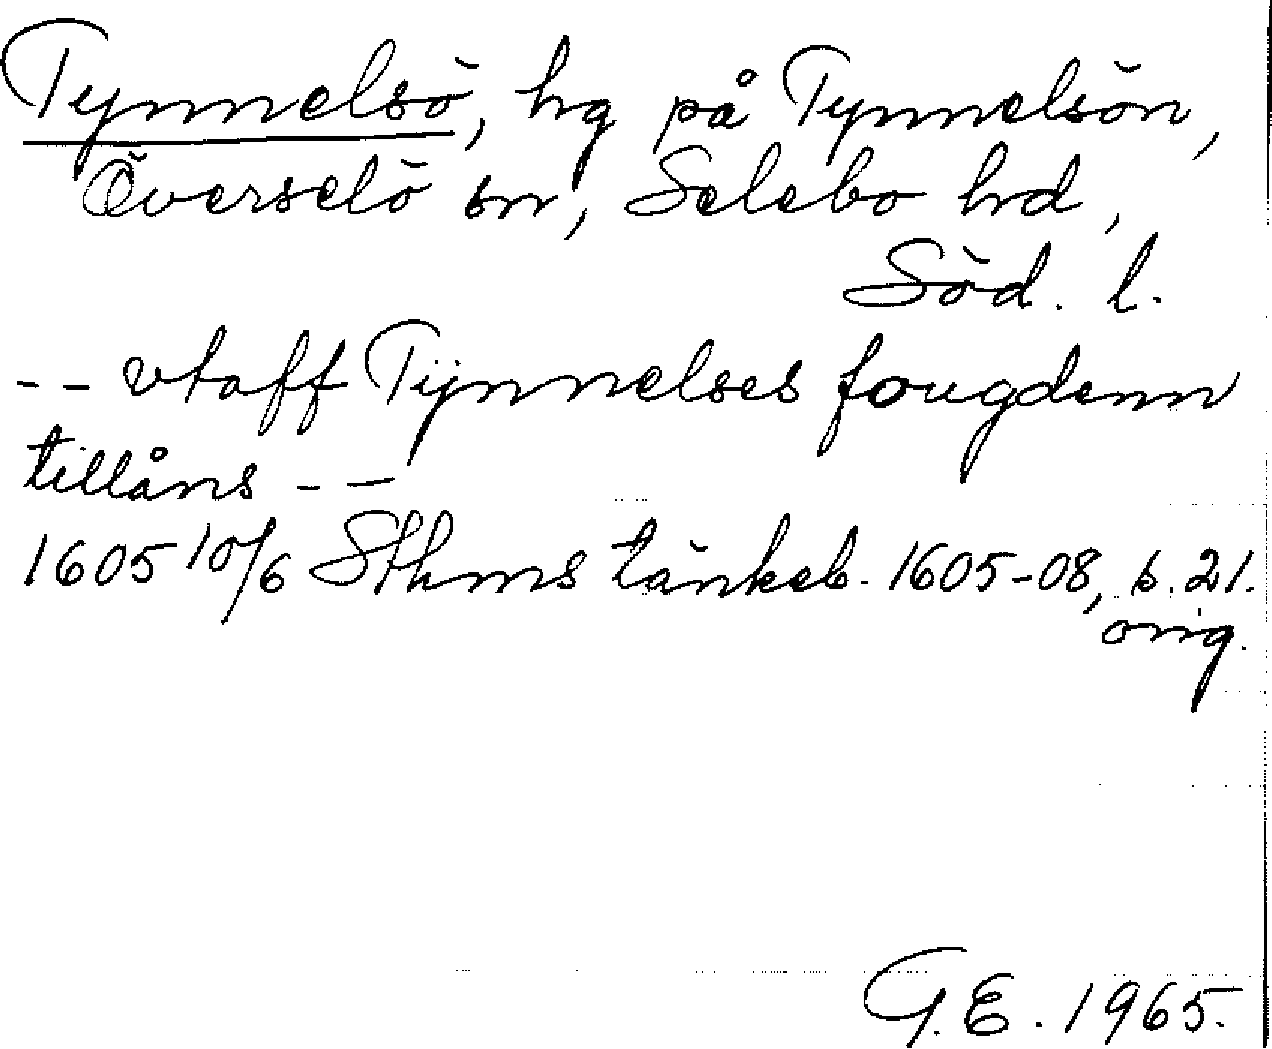 Tynnelsö, hg på Tynnelsön,
Överselö sn, Selebo hd,
Söd. l.
-- vtaff Tÿnnelses fougdenn
tillåns --
1605 10/6 Sthms tänkeb. 1605-08, s. 21.
orig.
G.E. 1965.